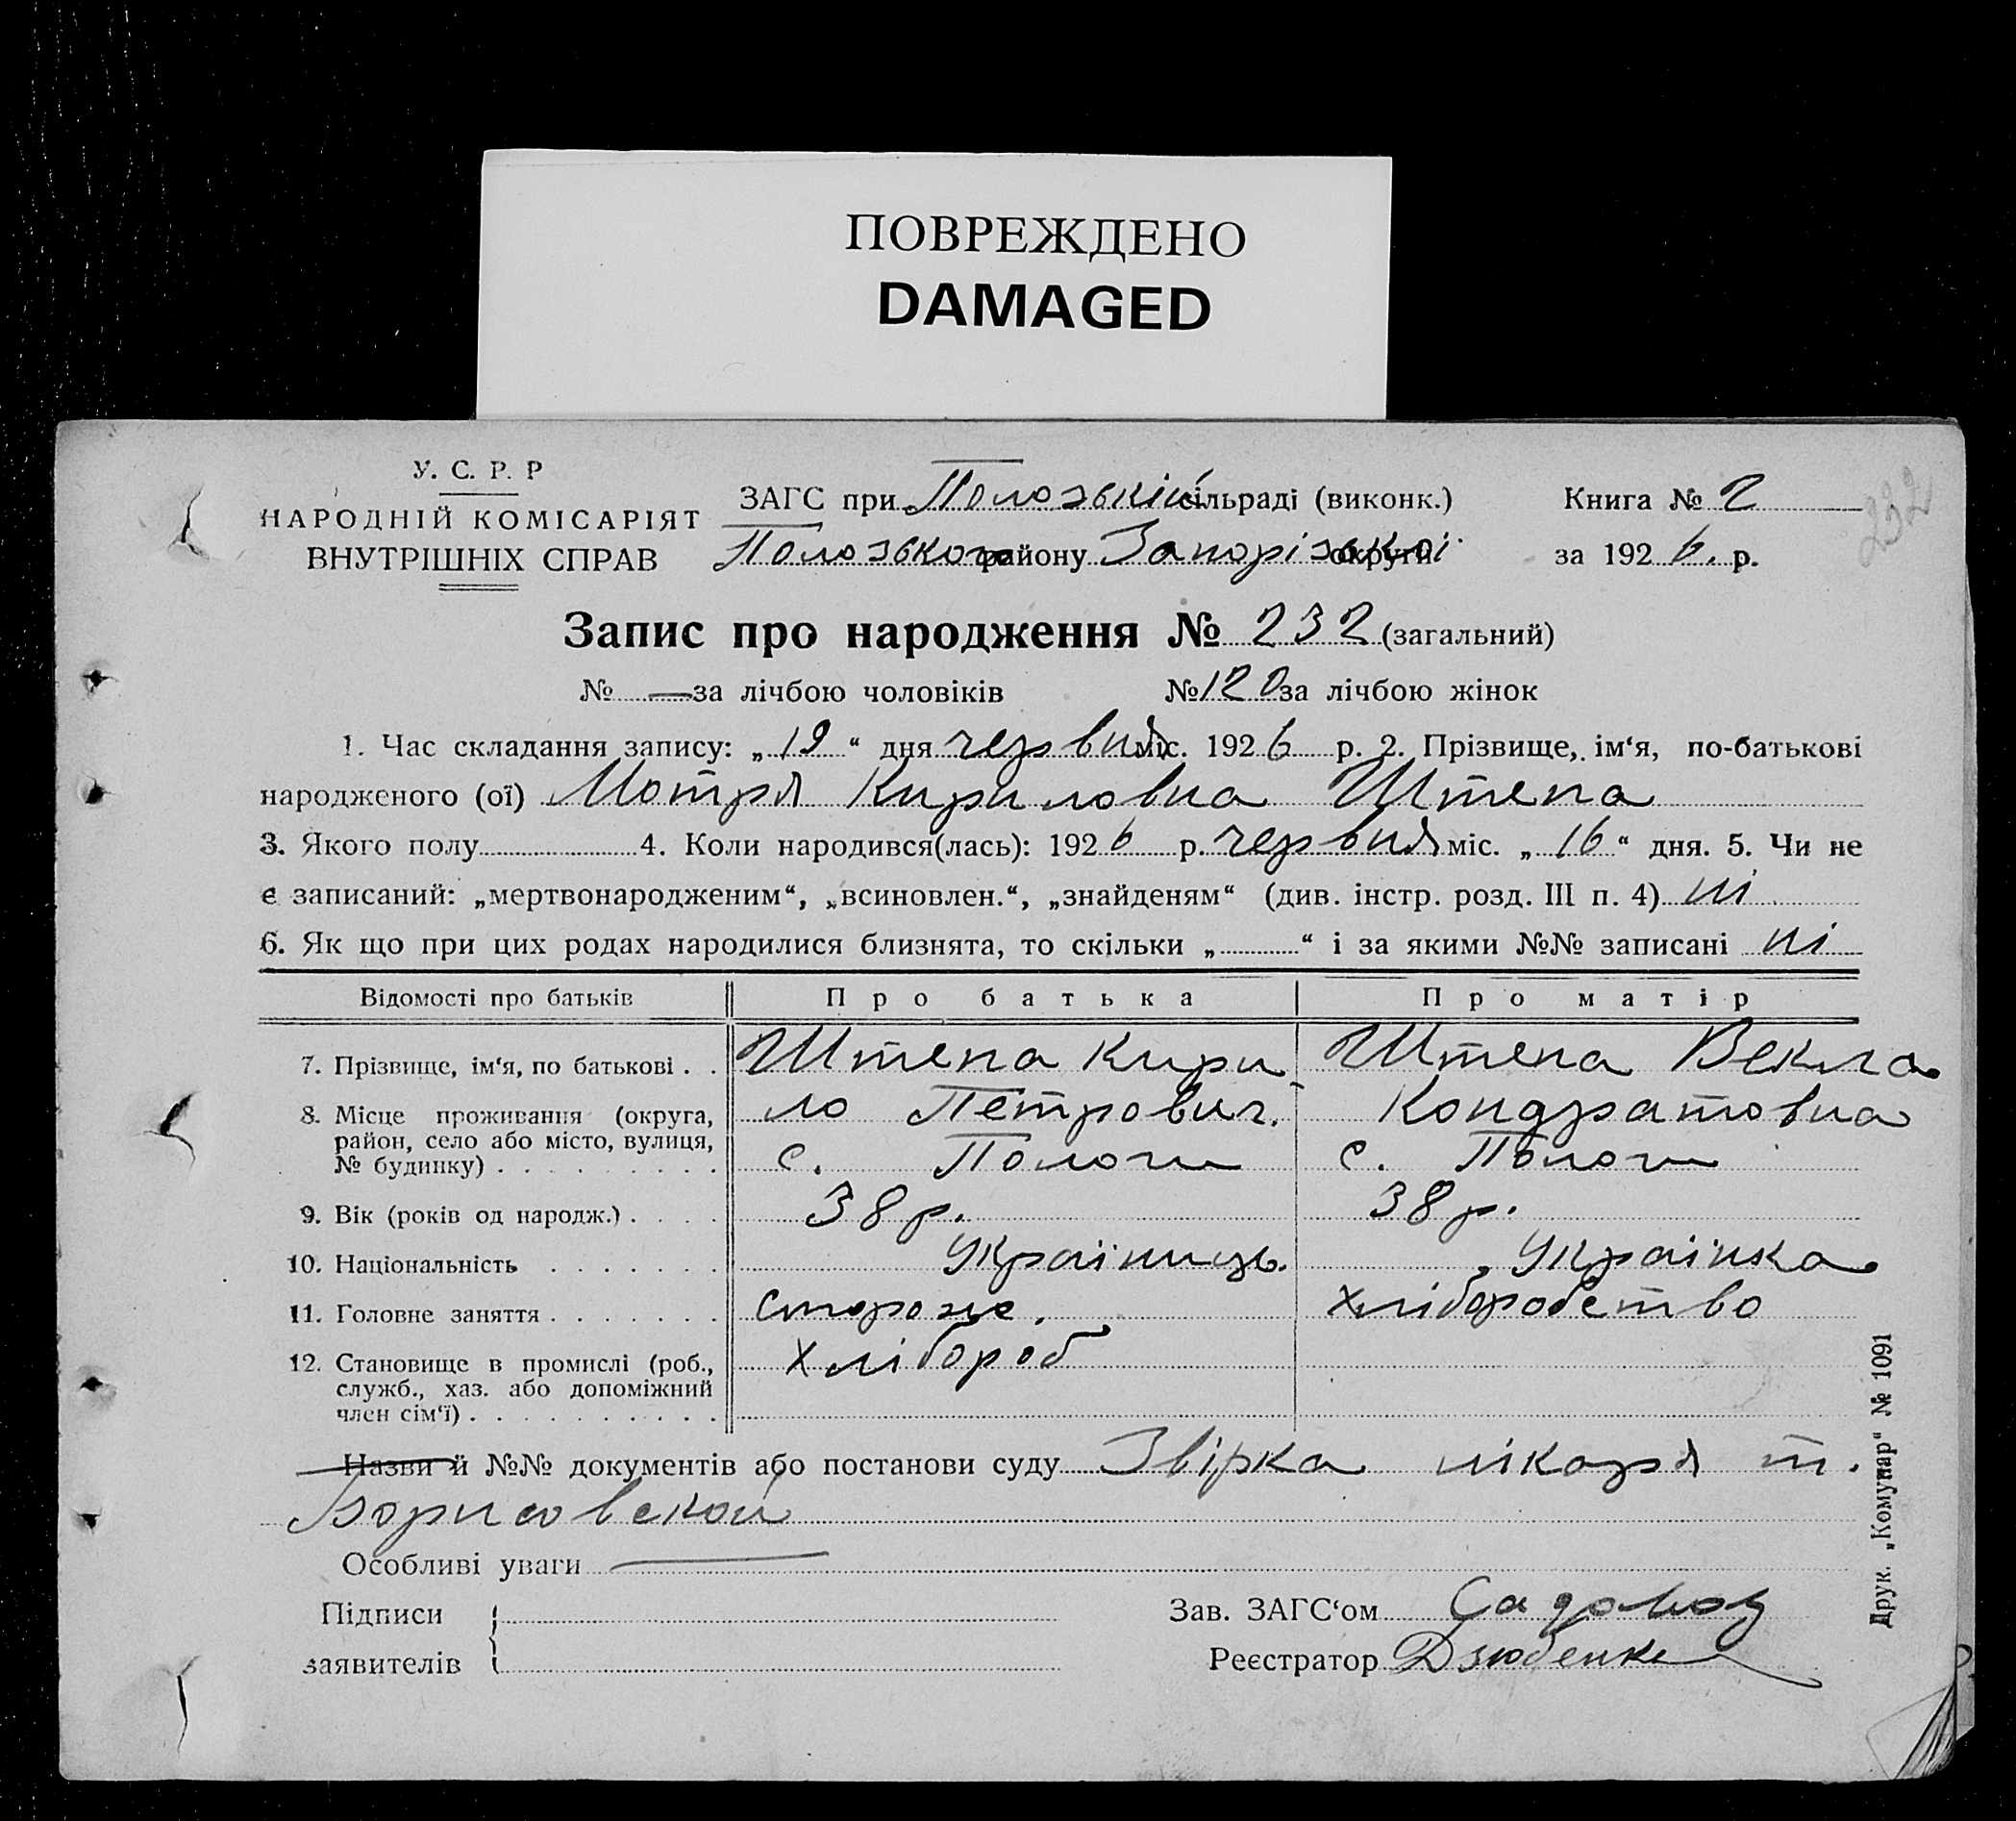 ПОВРЕЖДЕНО
DAMAGED
У. С. Р. Р
НАРОДНІЙ КОМІСАРІЯТ
ВНУТРІШНІХ СПРАВ
ЗАГС при Полозькій сільраді (виконк.)
Полозького району Запорізької округи
Книга № 2
за 1926. р.
232
Запис про народження № 232 (загальний)
№ — за лічбою чоловіків № 120 за лічбою жінок
1. Час складання запису: „19“ дня червня міс. 1926 р. 2. Прізвище, ім‘я, по-батькові
народженого (ої) Мотря Кириловна Штепа
3. Якого полу 4. Коли народився(лась): 1926 р. червня міс. „16“ дня. 5. Чи не
є записаний: „мертвонародженим“, „всиновлен.“, „знайденям“ (див. інстр. розд. III п. 4) ні
6. Як що при цих родах народилися близнята, то скільки „ “ і за якими №№ записані ні
Відомості про батьків Про батька Про матір
7. Прізвище, ім‘я, по батькові . . Штепа Кири- Штепа Векла
ло Петрович. Кондратовна
8. Місце проживання (округа,
район, село або місто, вулиця,
№ будинку) . . . . . . . . . с. Пологи с. Пологи
9. Вік (років од народж.) . . . . 38 р. 38 р.
10. Національність . . . . . . . Українець. Українка
11. Головне заняття . . . . . . . сторож. хліборобство
12. Становище в промислі (роб.,
служб., хаз. або допоміжний
член сім‘ї) . . . . . . . . . . хлібороб
Назви й №№ документів або постанови суду Звірка лікаря т.
Борисовской
Особливі уваги —
Підписи
заявителів
Зав. ЗАГС‘ом
Реєстратор Дзюбенко
Друк. „Комунар“ № 1091